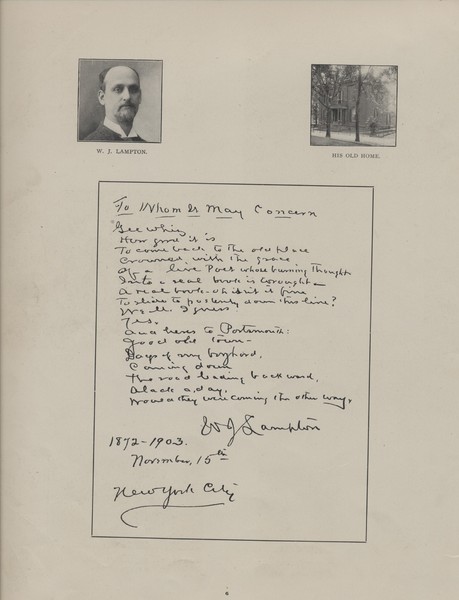 W. J. LAMPTON.
HIS OLD HOME.
To Whom It May Concern
Gee whiz,
How fine it is
To come back to the old place
Crowned with the grace
Of a live Poet whose burning thought
Into a real book is wrought—
A real book. oh isn't it fine
To slide to posterity down this line?
Well. I guess!
Yes.
And heres to Portsmouth:
Good old Town—
Days of my boyhood,
Coming down
The road leading backward,
Alack a, day,
Would they were coming the other way.
W J Lampton
1872-1903.
November, 15th
New York City